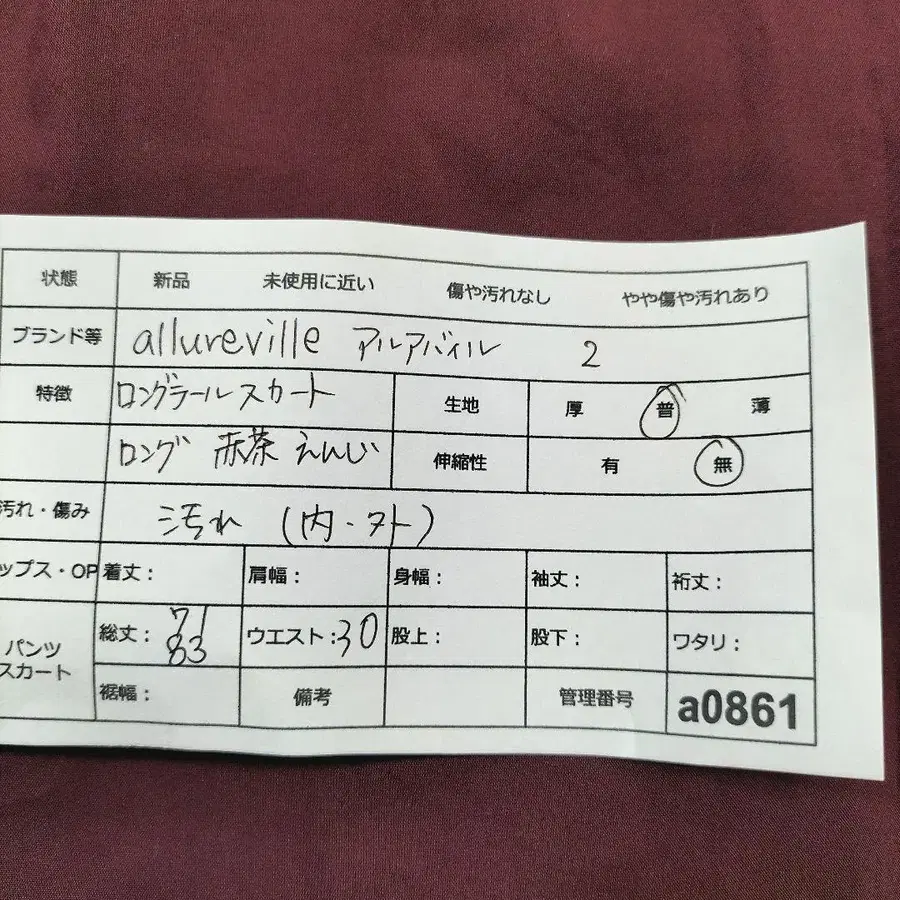 状態 新品 未使用に近い 傷や汚れなし やや傷や汚れあり
ブランド等 allureville アルアバイル 2
特徴 ロングテールスカート 生地 厚 普 薄
ロング 赤茶 えんじ 伸縮性 有 無
汚れ・傷み 汚れ (内・外)
ップス・OP 着丈: 肩幅: 身幅: 袖丈: 裄丈:
パンツ スカート 総丈: 71 83 ウエスト:30 股上: 股下: ワタリ:
裾幅: 備考 管理番号 a0861